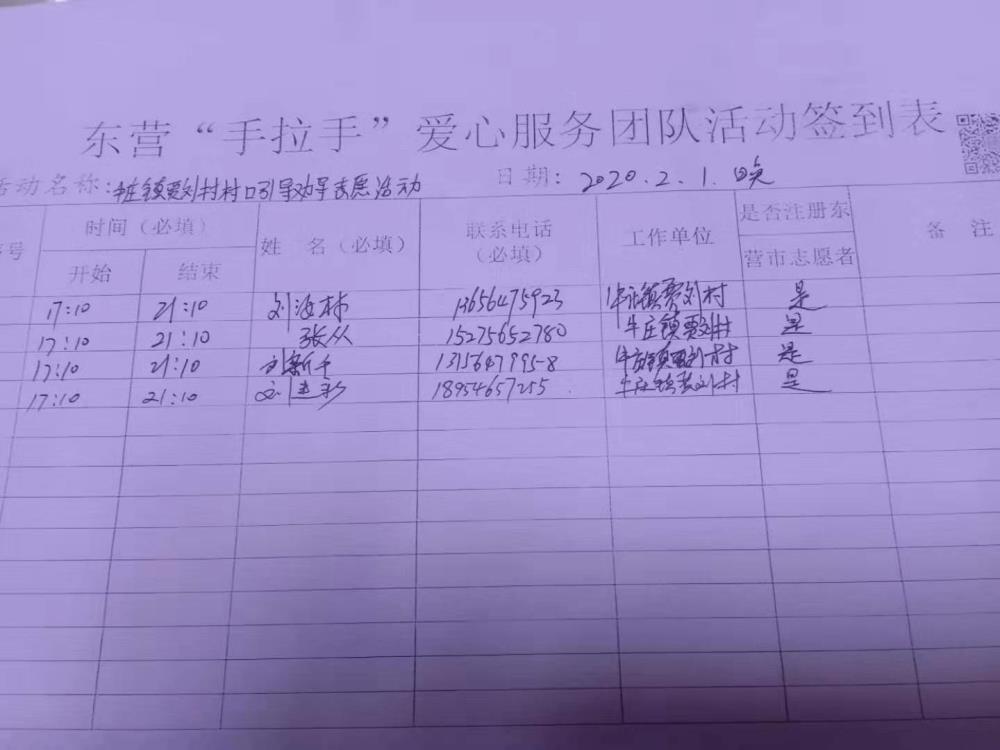 东营“手拉手”爱心服务团队活动签到表
活动名称：牛庄镇贾刘村村口引导劝导志愿活动 日期：2020.2.1.
序号 时间（必填） 姓 名（必填） 联系电话（必填） 工作单位 是否注册东营市志愿者 备 注
开始 结束
17:10 21:10 刘海林 13656475923 牛庄镇贾刘村 是
17:10 21:10 张从 15275652780 牛庄镇贾刘村 是
17:10 21:10 刘新千 13156479958 牛庄镇贾刘村 是
17:10 21:10 18954657255 牛庄镇贾刘村 是